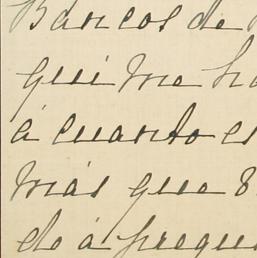 Bancos de
qui me ha
á cuanto es
más que 8
do á pregun